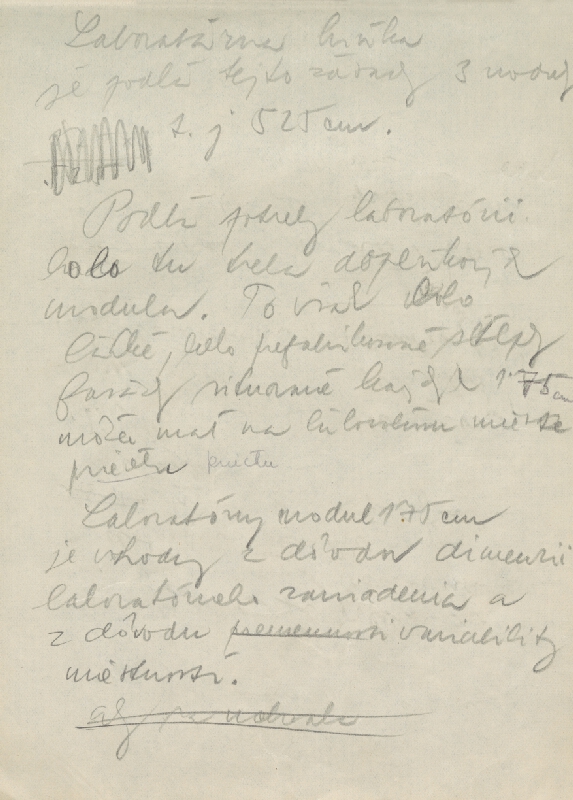 Laboratórna bunka
je podľa tejto zásady 3 moduly
t. j 525 cm.
Podľa potreby laboratórií
bolo tu treba doplnkových
modulov. To však bolo
ľahké, lebo prefabrikované stĺpy
fasády situované každých 175 cm
môžu mať na ľubovoľnom mieste
priečku priečku
Laboratórny modul 175 cm
je vhodný z dôvodu dimenzií
laboratórneho zariadenia a
z dôvodu premennosti variability
miestností.